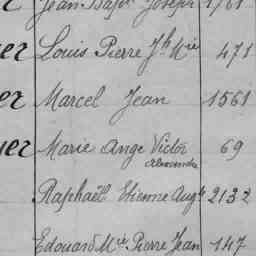 Jean Bapt Joseph 1761
er Louis Pierre Jh Mie 471
er Marcel Jean 1561
er Marie Ange Victor 69
Alexandre
Raphaël Etienne Augte 2132
Edouard Mie Pierre Jean 147